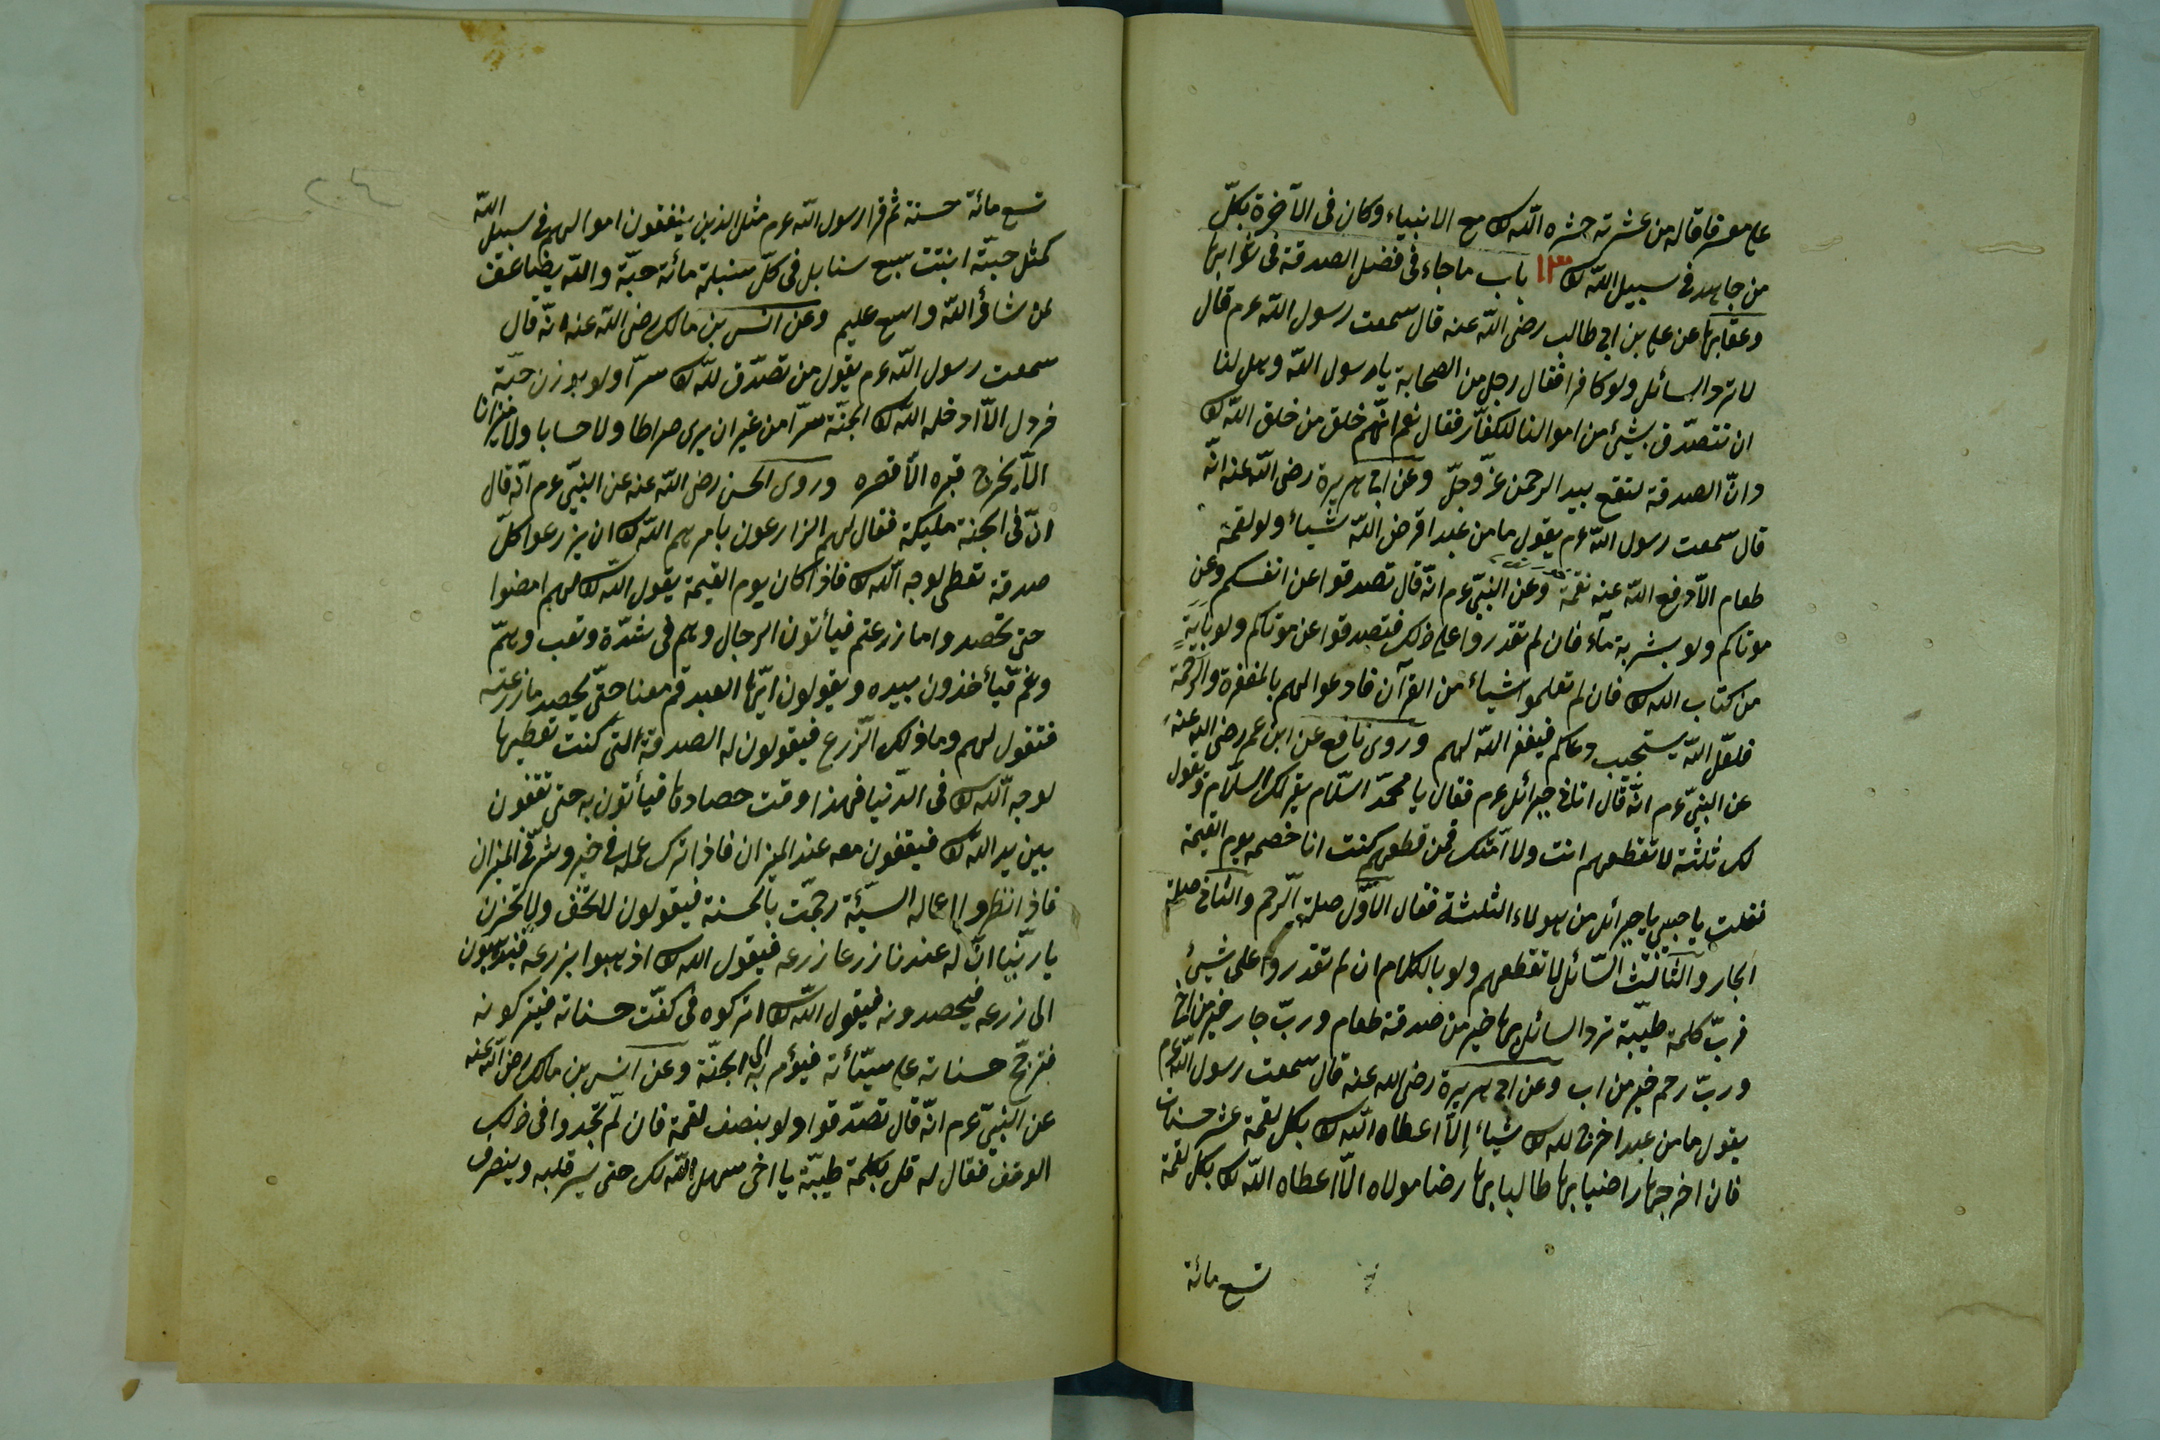 على معسر فاقاله من عشرته حشره الله تع مع الانبياء وكان فى الآخرة بكلّ
من جاهد فى سبيل الله تع ١٣ باب ما جاء فى فضل الصدقة فى ثوابها
وعقابها عن على بن ابى طالب رضى الله عنه قال سمعت رسول الله عم قال
لا تردوا السائل ولو كافرا فقال رجل من الصحابة يا رسول الله وهل لنا
ان نتصدّق بشيئ من اموالنا للكفّار فقال نعم انّهم خلق من خلق الله تع
وانّ الصدقة لتقع بيد الرحمن عزّ وجلّ وعن ابى هريرة رضى الله عنه انّه
قال سمعت رسول الله عم يقول ما من عبد اقرض الله شياء ولو لقمة
طعام الاّ دفع الله عنه نقمة وعن النبىّ عم انّه قال تصدقوا عن انفسكم وعن
موتاكم ولو بشربة ماء فان لم تقدروا على ذلك فتصدقوا عن موتاكم ولو بآية
من كتاب الله تع فان لم تعلموا شياء من القرآن فادعوا لهم بالمغفرة والرّحمة
فلعلّ الله يستجيب دعاكم فيغفر الله لهم وروى نافع عن ابن عمر رضى الله عنه
عن النبىّ عم انّه قال اتانى جبرائل عم فقال يا محمّد السّلام يقرئك السّلام ويقول
لك ثلثة لا تقطعهم انت ولا امّتك فمن قطعهم كنت انا خصمه يوم القيمة
فقلت يا حبيبى يا جبرائل من هولاء الثلثة فقال الاوّل صلة الرّحم والثانى صلة
الجار والثالث السّائل لا تقطعهم ولو بالكلام ان لم تقدروا على شيئ
فربّ كلمة طيّبة تردوا السائل بها خير من صدقة طعام وربّ جار خير من اخ
وربّ رحم خير من اب وعن ابى هريرة رضى الله عنه قال سمعت رسول الله عم
يقول ما من عبد اخرج لله تع شياء إلّا اعطاه الله تع بكل لقمة عشر حسنات
فان اخرجها راضيا بها طالبا بها رضا مولاه الّا اعطاه الله تع بكل لقمة
تسع مائة
تسع مائة حسنة ثم قرا رسول الله عم مثل الذين ينفقون اموالهم فى سبيل الله
كمثل حبّة انبتت سبع سنابل فى كلّ سنبلة مائة حبّة والله يضاعف
لمن شاؤ الله واسع عليم وعن انس بن مالك رضى الله عنه انّه قال
سمعت رسول الله عم يقول من تصدّق لله تع سرّا ولو بوزن حبّة
خردل الاّ ادخله الله تع الجنّة سرّا من غير ان يرى صراطا ولا حسابا ولا ميزانا
الاّ يخرج قبره الا قصره وروى الحسن رضى الله عنه عن النبىّ عم انّه قال
انّ فى الجنة مليكة فقال لهم الزارعون يامرهم الله تع ان يزرعوا كلّ
صدقة تعطى لوجه الله تع فاذا كان يوم القيمة يقول الله تع لهم امضوا
حتى تحصدوا ما زرعتم فيأتون الرجال وهم فى شدّة وتعب وهمّ
وغمّ فيأخذون بيده ويقولون ايّها العبد قم معنا حتّى يحصد ما زرعته
فتقول لهم وما ذلك الزّرع فيقولون له الصدقة التى كنت تعطيها
لوجه الله تع فى الدّنيا فهذا وقت حصادها فيأتون به حتى تقفون
بين يد الله تع فيقفون معه عند الميزان فاذا ترك عمله فى خير وشرّ فى الميزان
فاذا نظروا الى اعماله السيّئة رجّحت بالحسنة فيقولون لا تخف ولا تحزن
يا ربّنا انّ له عندنا زرعا زرعه فيقول الله تع اذهبوا بزرعه فيذهبون
الى زرعه فيحصدونه فيقول الله تع اتركوه فى كفّت حسناته فيتركونه
فترجّح حسناته على سيّئاته فيؤمر به الى الجنّة وعن انس بن مالك رضى الله عنه
عن النبىّ عم انّه قال تصدّقوا ولو بنصف لقمة فان لم تجدوا فى ذلك
الوقف فقال له قل بكلمة طيبّة يا اخى سهل الله لك حتى يسر قلبه وينصرف